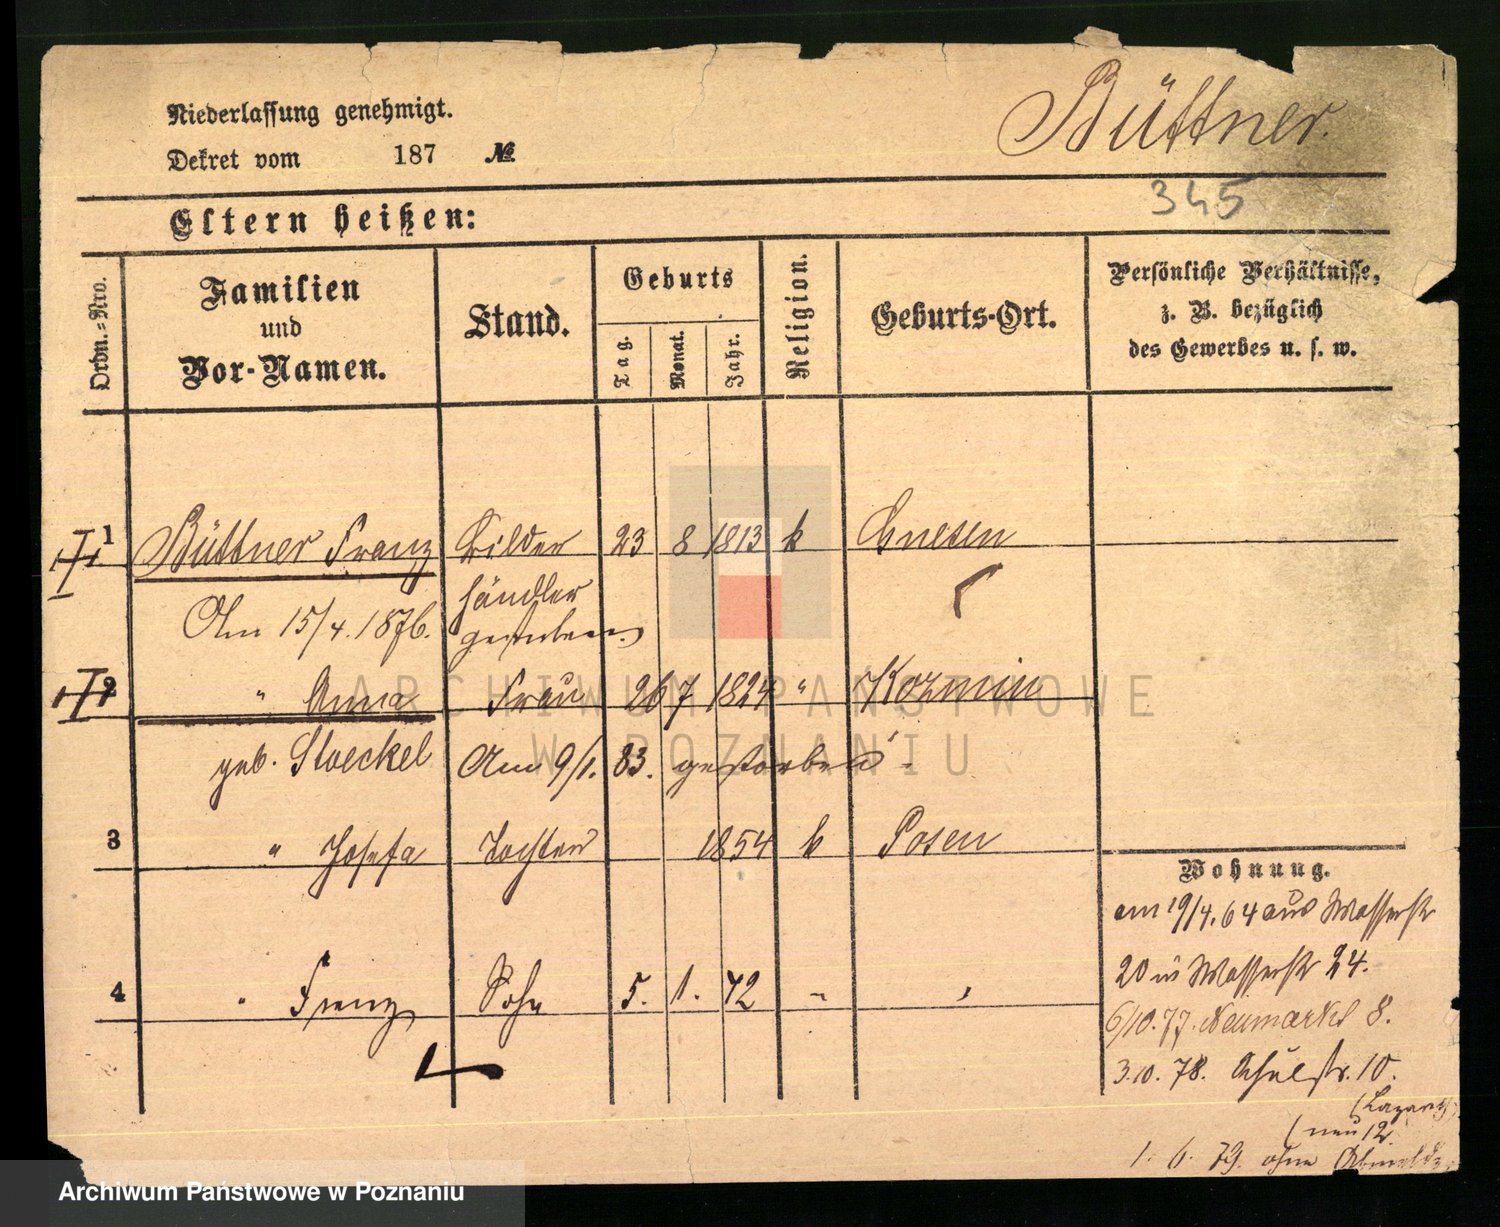 Niederlassung genehmigt.
Dekret vom 187 №
Büttner.
345
Eltern heißen:
Ordn.-Nro.
Familien
und
Vor-Namen.
Stand.
Geburts
Tag.
Monat.
Jahr.
Religion.
Geburts-Ort.
Persönliche Verhältnisse,
z. B. bezüglich
des Gewerbes u. s. w.
1 Büttner Franz Bilder 23 8 1813 k Gnesen
händler
Am 15/4. 1876. gestorben
2 " Anna Frau 26 7 1824 " Kozmin
geb. Stoeckel Am 9/1. 83. gestorben.
3 " Josefa Tochter 1854 k Posen
4 " Franz Sohn 5. 1. 72 " "
Wohnung.
am 19/4. 64 aus Wasserstr
20 in Wasserstr 24.
6/10. 77. Neumarkt 8.
3.10. 78. Schulstr. 10.
(Lazareth)
(neu 12
1. 6. 79. ohne
ARCHIWUM PAŃSTWOWE
W POZNANIU
Archiwum Państwowe w Poznaniu